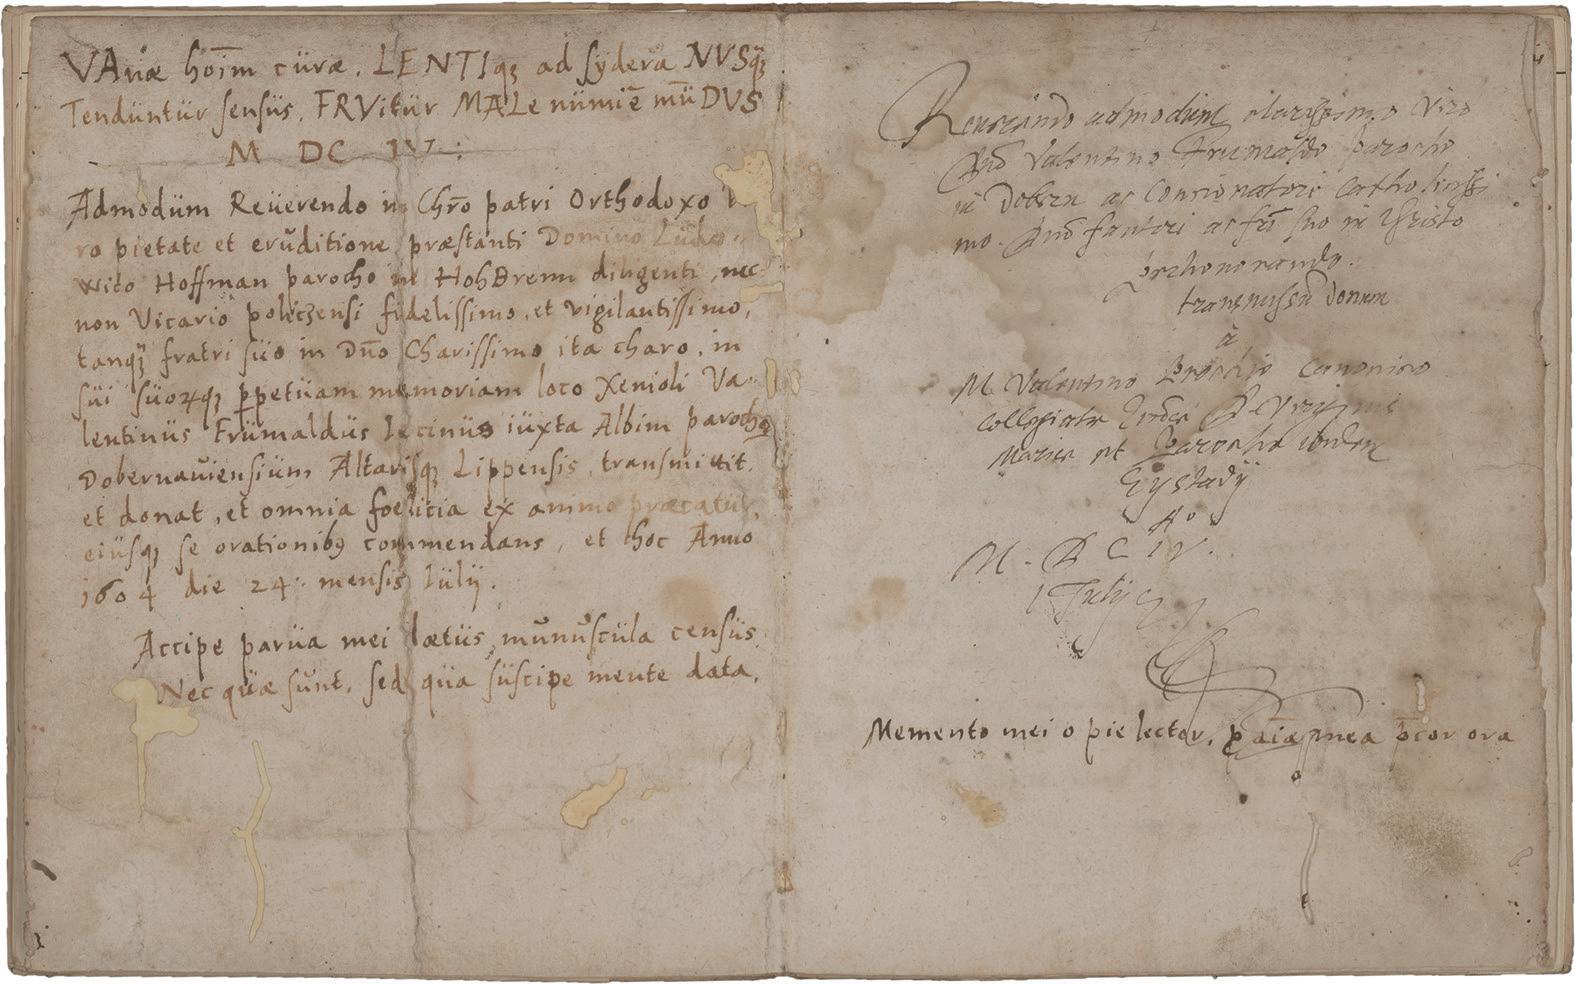 VAriæ hoīm cüræ, LENTIqꝫ ad sydera NVSqꝫ
Tendüntür sensüs, FRVitür MALe nümiē mūDVS
M DC IV :
Admodüm Reüerendo in Chr̄o patri Orthodoxo
ro pietate et erŭditione præstanti Domino Lŭdo
wico Hoffman parocho in diligenti, nec
non Vicario policzensi fidelissimo, et vigilantissimo,
tanqꝫ fratri süo in Dn̄o Charissimo ita charo, in
süi süoꝝqꝫ ꝑpetüam memoriam loco Xenioli Va
lentinüs Frümaldüs iüxta Albim parochꝯ
Dobernaüiensiüm Altarisqꝫ Lippensis, transmittit,
et donat, et omnia foelicia ex animo præcatür,
eiüsqꝫ se orationibꝯ commendans, et hoc Anno
1604 die 24 mensis Iülÿ.
Accipe parüa mei lætüs mŭnŭscüla censüs
Nec qüæ sŭnt, sed qüa süscipe mente data,
Reuerando admodum clarissimo viro
Dn̄o Valentino Frumaldo Parocho
in Dobern ac Concionatori Catholicissi
mo. Dn̄o fautori ac fr̄i suo in Christo
perhonorando.
transmissū donum
à
M. Valentino Canonico
Collegiatæ
Mariæ et Parocho ibidem
Eystadij
Aº
M. D C IV.
1 Julij
Memento mei o pie lector, ꝑ aīa mea p̄cor ora